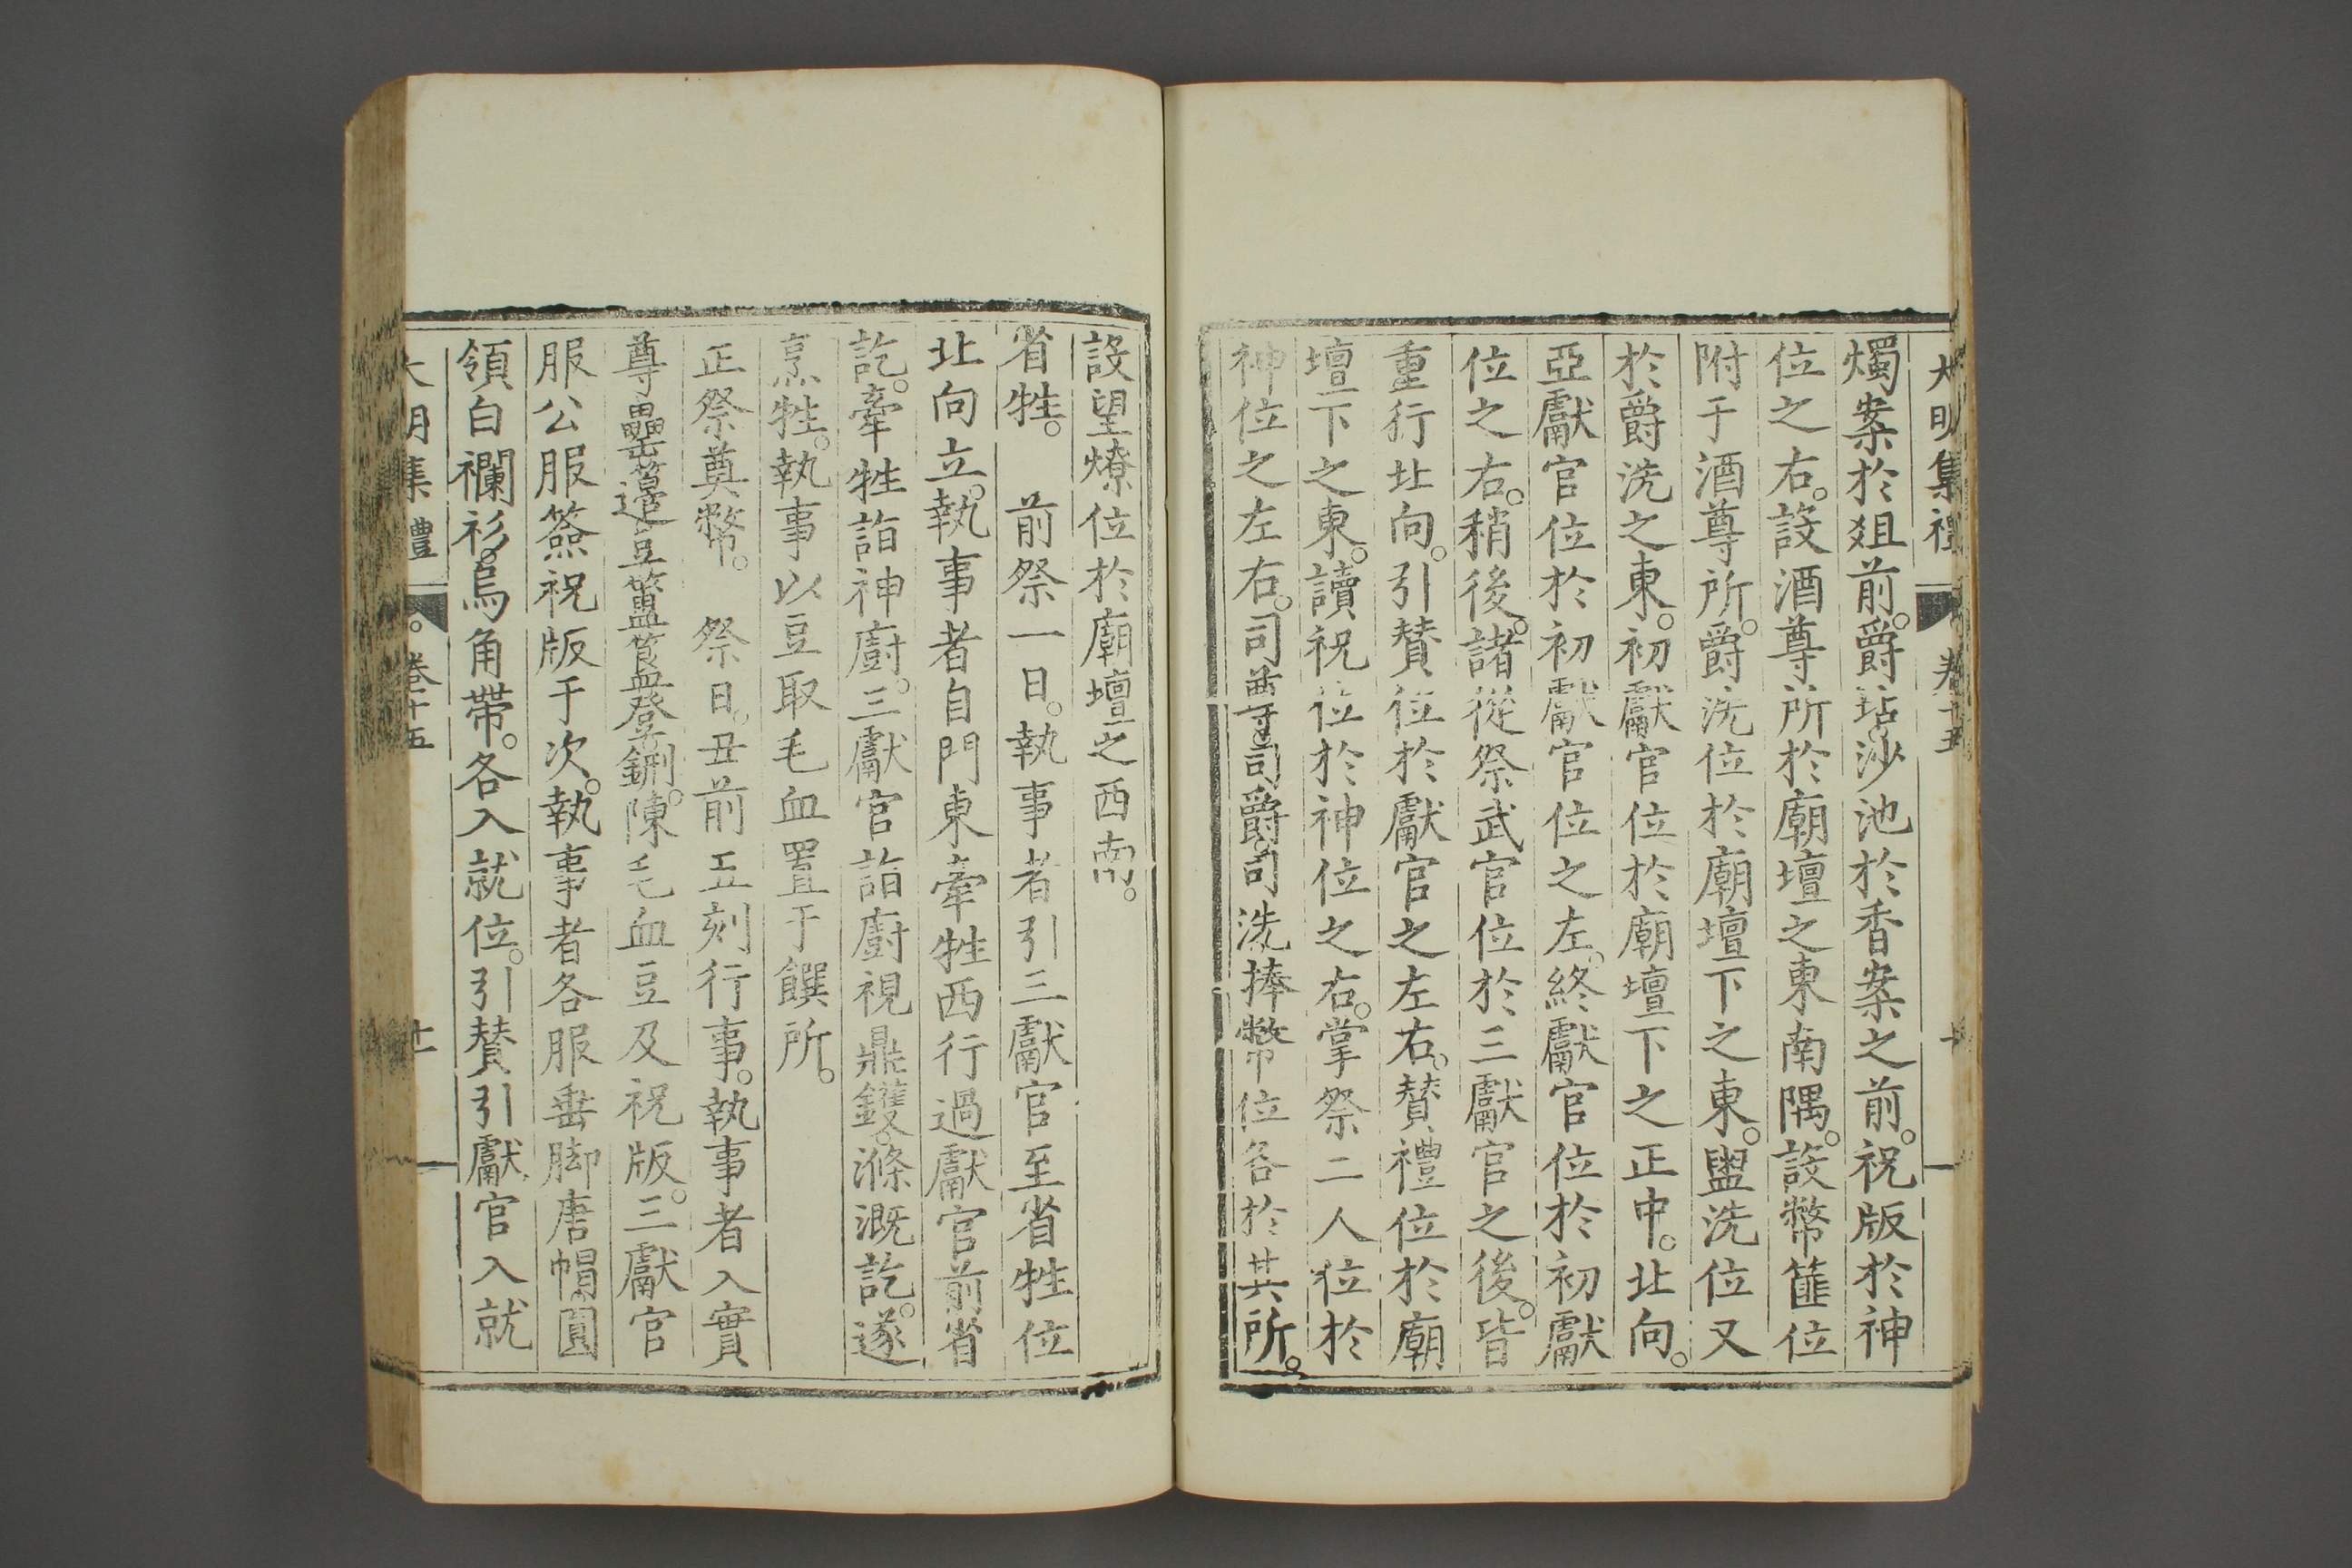 大明集禮 卷十五 十
燭案於爼前。爵坫。沙池於香案之前。祝版於神
位之右。設酒尊所於廟壇之東南隅。設幣篚位
附于酒尊所。爵洗位於廟壇下之東。盥洗位又
於爵洗之東。初獻官位於廟壇下之正中。北向。
亞獻官位於初獻官位之左。終獻官位於初獻
位之右。稍後。諸從祭武官位於三獻官之後。皆
重行北向。引贊位於獻官之左右。贊禮位於廟
壇下之東。讀祝位於神位之右。掌祭二人位於
神位之左右。司尊司爵司洗捧幣位各於其所。
設望燎位於廟壇之西南。
省牲。 前祭一日。執事者引三獻官至省牲位
北向立。執事者自門東牽牲西行過獻官前省
訖。牽牲詣神廚。三獻官詣廚視鼎鑊。滌溉訖。遂
烹牲。執事以豆取毛血置于饌所。
正祭奠幣。 祭日。丑前五刻行事。執事者入實
尊罍籩豆簠簋登鉶。陳毛血豆及祝版。三獻官
服公服簽祝版于次。執事者各服垂脚唐帽。圓
領白襴衫。烏角帶。各入就位。引贊引獻官入就
大明集禮 卷十五 十一